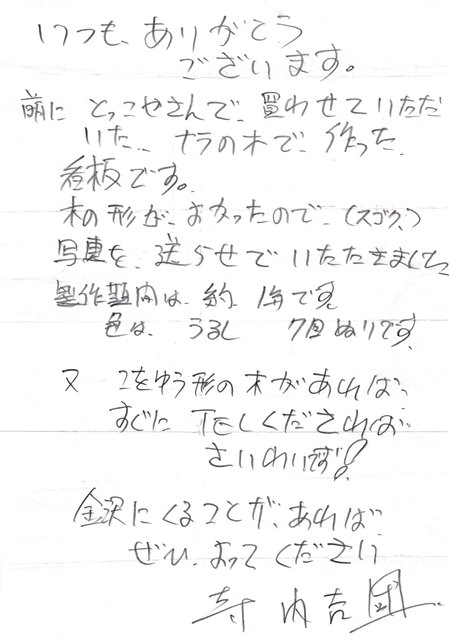 いつも、ありがとう
ございます。
前に とっこやさんで、買わせていただ
いた、ナラの木で、作った、
看板です。
木の形が、よかったので、(スゴク、)
写真を、送らせていただきました
製作期間は、約、1年です。
色は、うるし 7回ぬりです、
又 こをゆう形の木があれば、
すぐに TELくだされば、
さいわいです!
金沢にくることが、あれば、
ぜひ、よってください
寺内吉國